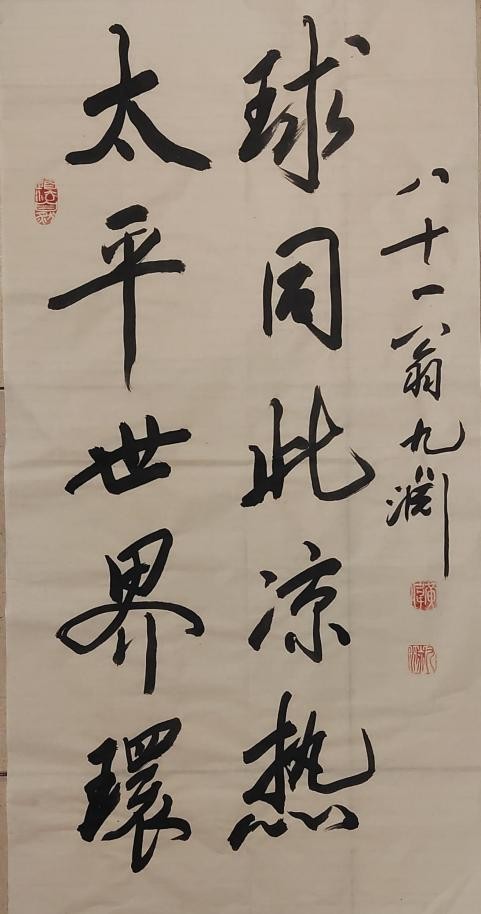 太平世界環
球同此凉热
八十一翁九渊